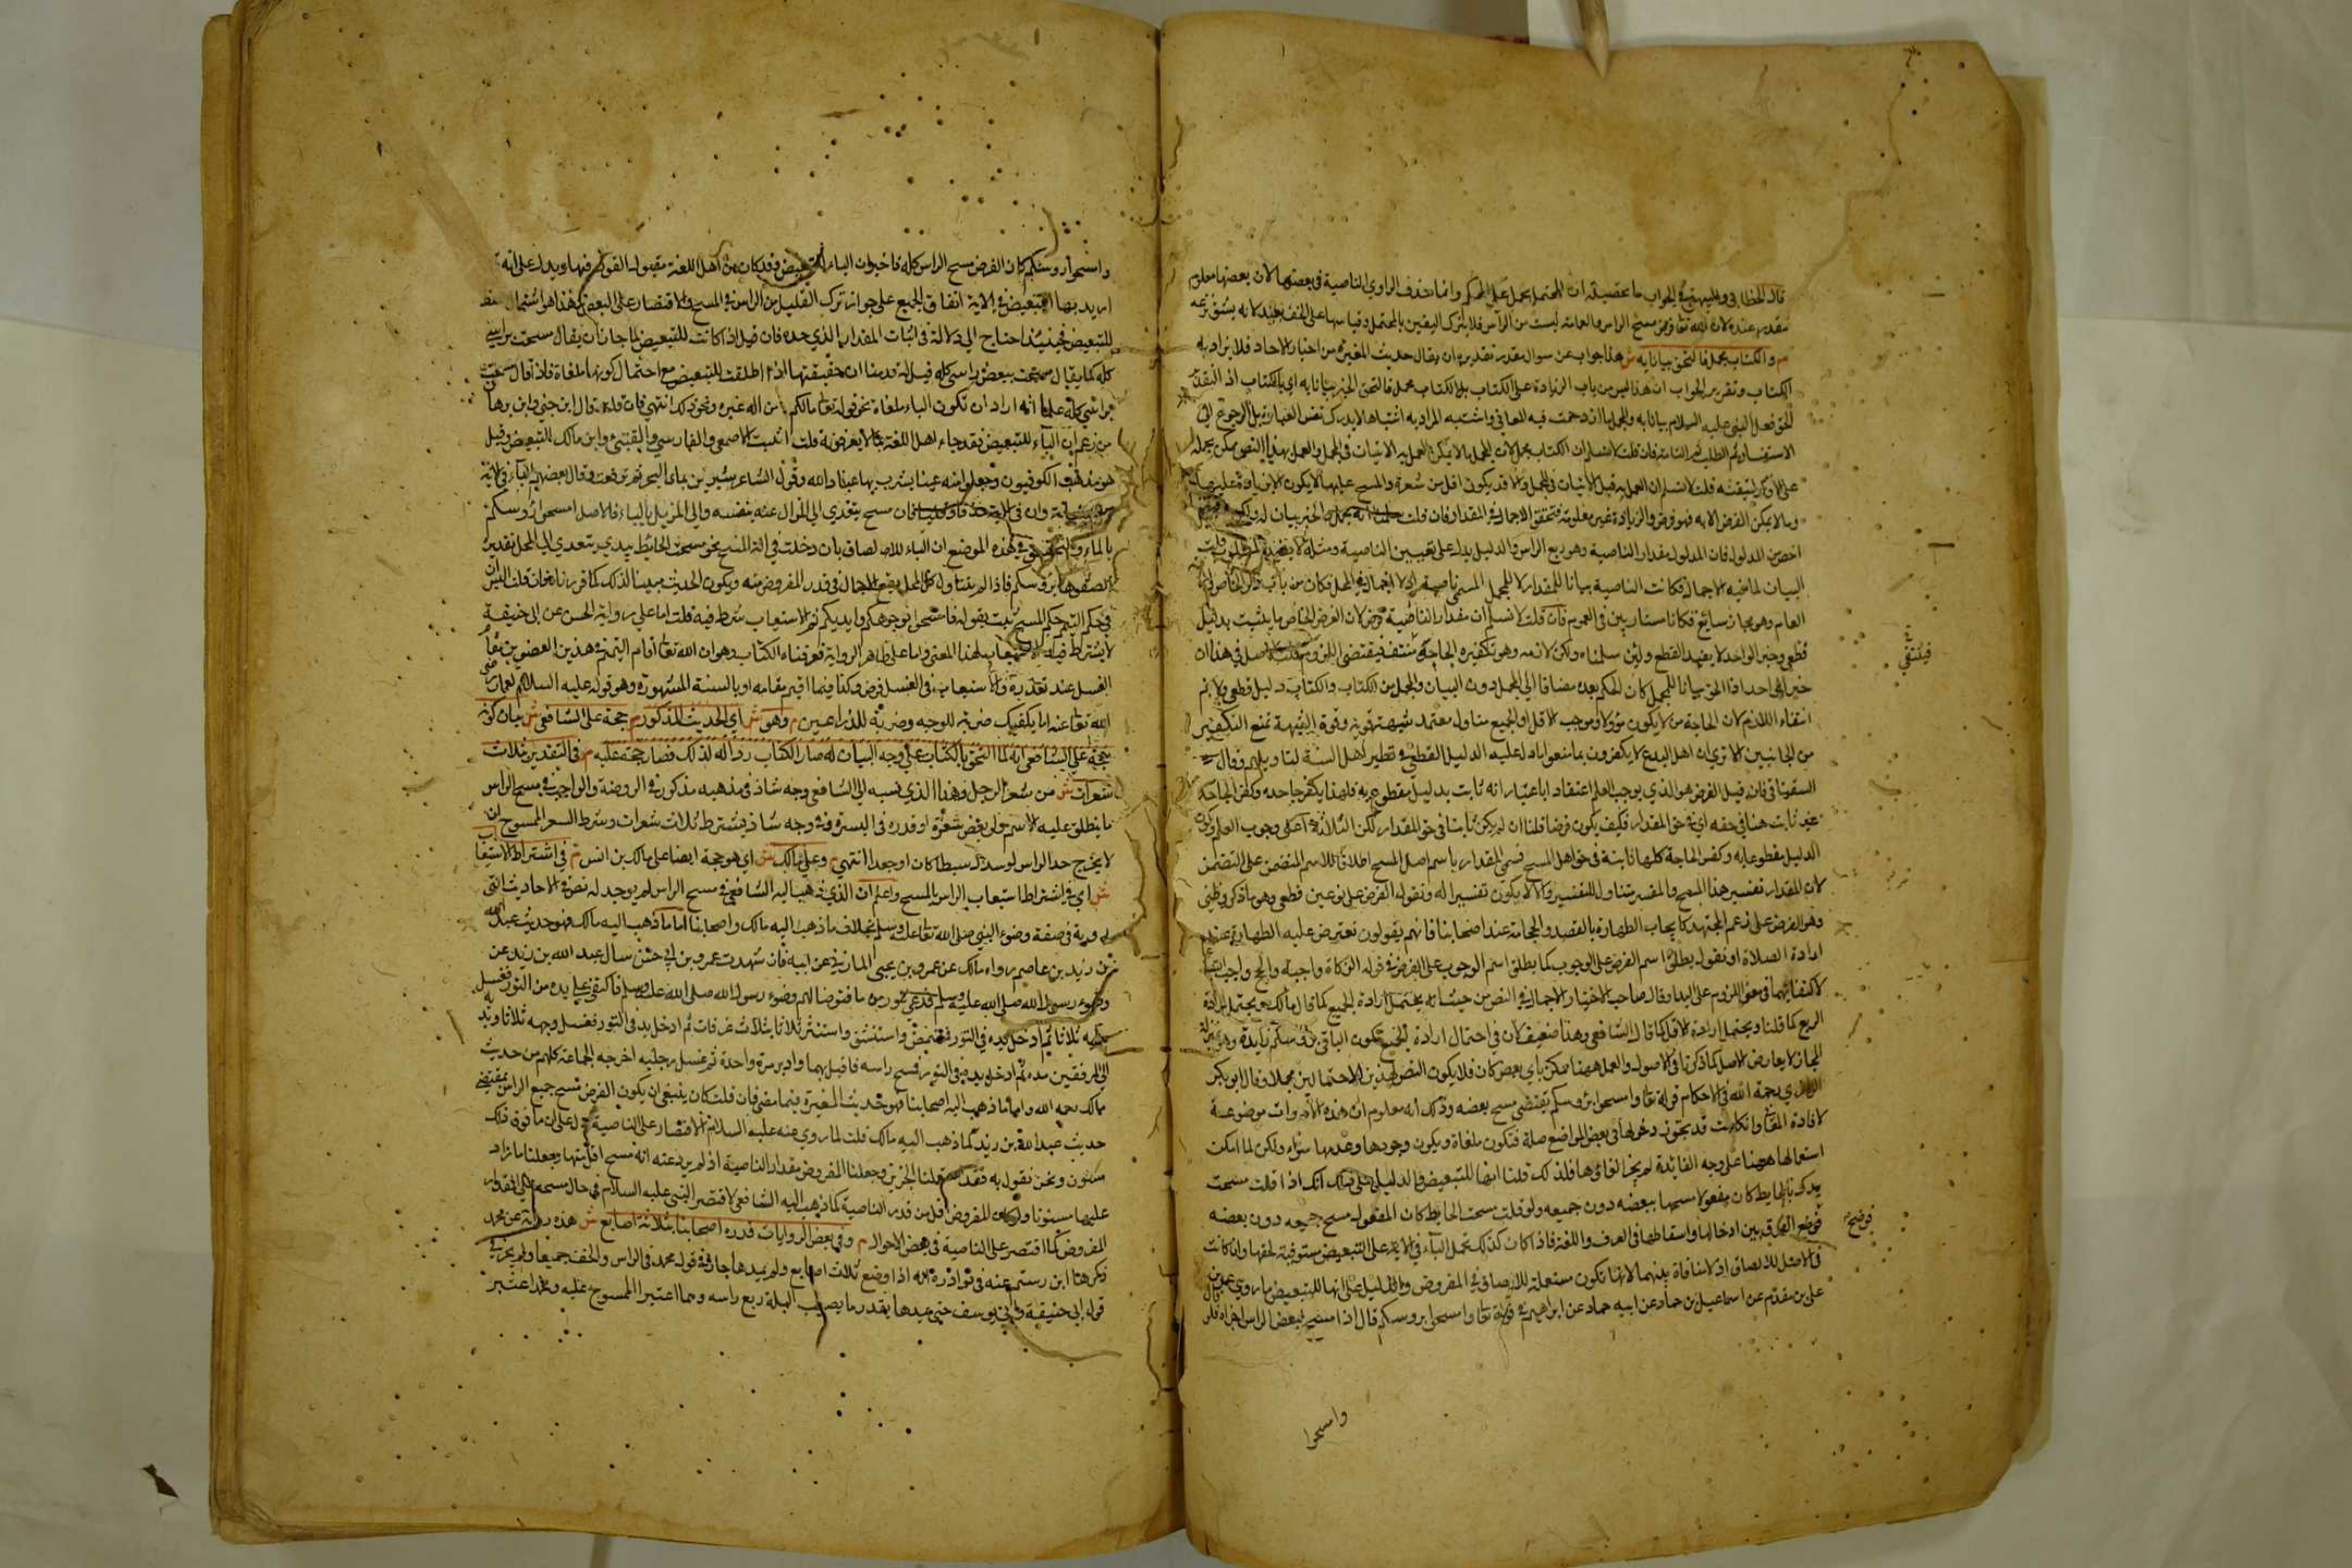 قال الخطابي والبيهقي في الجواب ما تحصيله ان المحتمل يحمل على المحكم وانما حذف الراوي الناصية في بعضها لان بعضها معلوم
مقدر عنده لان الله تعالى فرض مسح الراس والعمامة ليست من الراس فلا يترك اليقين بالمحتمل وقياسها على الخف بعيد لانه يشق نزعه
م والكتاب مجمل فالتحق بيانا به ش هذا جواب عن سوال مقدر تقديره ان يقال حديث المغيرة من اخبار الاحاد فلا يزاد به
الكتاب وتقرير الجواب ان هذا ليس من باب الزيادة على الكتاب بل الكتاب مجمل فالتحق الخبر بيانا به اي بالكتاب اذ
التحق فعل النبي عليه السلام بيانا به والمجمل ما ازدحمت فيه المعاني واشتبه المراد به اشتباها لا يدرك بنفس العبارة بل الرجوع الى
الاستفسار ثم الطلب ثم التامل فان قلت لا نسلم ان الكتاب مجمل لان المجمل ما لا يمكن العمل به الا ببيان في المجمل والعمل بهذا النص ممكن بحمله
على الاقل لتيقنه قلت لا نسلم ان العمل به قبل البيان والاقل قد يكون اقل من شعرة والمسح عليها لا يكون الا بزيادة عليها
وما لا يمكن الفرض الا به فهو فرض والزيادة غير معلومة فتحقق الاجمال في المقدار فان قلت سلمنا انه مجمل والخبر بيان له
اخص من المدلول فان المدلول مقدار الناصية وهو ربع الراس والدليل يدل على تعيين الناصية ومثله لا يفيد المطلوب قلت
البيان لما فيه الاجمال فكانت الناصية بيانا للمقدار لا للمحل المسمى ناصية اذ لا اجمال في المحل فكان من باب ذكر الخاص وارادة
العام وهو مجاز سائغ فكانا متساويين في العموم فان قلت لا نسلم ان مقدار الناصية فرض لان الفرض الخاص ما يثبت بدليل
قطعي وخبر الواحد لا يفيد القطع ولئن سلمناه ولكن لازمه وهو تكفير الجاحد منتف فينتفي الملزوم قلت الاصل في هذا ان
خبر الواحد اذا لحق بيانا للمجمل كان الحكم بعده مضافا الى المجمل دون البيان والمجمل من الكتاب والكتاب دليل قطعي ولا نم
انتفاء اللازم لان الجاحد من لا يكون مؤولا وموجب الاقل او الجميع متاول معتمد شبهة قوية وقوة الشبهة تمنع التكفير
من الجانبين الا ترى ان اهل البدع لا يكفرون بما منعوا مما دل عليه الدليل القطعي في نظر اهل السنة لتاويلهم وقال
السغناقي فان قيل الفرض هو الذي يوجب العلم اعتقادا باعتبار انه ثابت بدليل مقطوع به فلهذا يكفر جاحده وكفر الجاحد
غير ثابت هنا في حقه اي في حق المقدار فكيف يكون فرضا قلنا ان لم يكن ثابتا في حق المقدار لكن الثلاثة اعني وجوب العلم وكون
الدليل مقطوعا به وكفر الجاحد كلها ثابتة في حق اصل المسح فسمى المقدار باسم اصل المسح اطلاقا للاسم المتضمن على المتضمن
لان المقدار تفسير هذا المسح والمفسر يتناول المفسر والا لا يكون تفسيرا له ونقول الفرض على نوعين قطعي وهو ما ذكر وظني
وهو الفرض على زعم المجتهد كايجاب الطهارة بالفصد والحجامة عند اصحابنا فانهم يقولون تفترض عليه الطهارة عند
ارادة الصلاة او نقول يطلق اسم الفرض على الوجوب كما يطلق اسم الوجوب على الفرض في قوله الزكاة واجبة والحج واجب
لالتقائهما في معنى اللزوم على البدل وقال صاحب الاختيار الاجمال في النص من حيث انه يحتمل ارادة الجميع كما قال مالك ويحتمل ارادة
الربع كما قلنا ويحتمل ارادة الاقل كما قال الشافعي وهذا ضعيف لان في احتمال ارادة الجميع تكون الباء في برؤسكم زايدة وهو بمنزلة
المجاز لا يعارض الاصل كما ذكرنا في الاصول والعمل ههنا ممكن باي بعض كان فلا يكون النص بهذين الاحتمالين مجملا وقال ابو بكر
الرازي رحمه الله في الاحكام قوله تعالى وامسحوا برؤسكم يقتضي مسح بعضه وذلك انه معلوم ان هذه الادوات موضوعة
لافادة المعاني وان كانت قد يجوز دخولها في بعض المواضع صلة فتكون ملغاة ويكون وجودها وعدمها سواء ولكن لما امكن
استعمالها ههنا على وجه الفائدة لم يجز الغاؤها فلذلك قلنا انها للتبعيض والدليل على ذلك انك اذا قلت مسحت
يدي بالحايط كان معقولا مسحها ببعضه دون جميعه ولو قلت مسحت الحايط كان المعقول مسح جميعه دون بعضه
فوضح الفرق بين ادخالها واسقاطها في العرف واللغة فاذا كان كذلك تحمل الباء في الاية على التبعيض مستوفية لحقها وان كانت
في الاصل للالصاق اذ لا منافاة بينهما لانها تكون مستعملة للالصاق في المفروض والدليل على انها للتبعيض ما روي عمر بن
علي بن مقدم عن اسماعيل بن حماد عن ابيه حماد عن ابراهيم في قوله تعالى وامسحوا برؤسكم قال اذا مسح ببعض الراس اجزاه قال
فينتفي
فوضح
وامسحوا
وامسحوا رؤسكم كان الفرض مسح الراس كله فاخبر ان الباء للتبعيض وقد كان من اهل اللغة مقبول القول فيها ويدل على انه
اريد بها التبعيض في الاية اتفاق الجميع على جواز ترك القليل من الراس في المسح والاقتصار على البعض وهذا هو استعمال اللفظ
للتبعيض فحينئذ احتاج الى دلالة في اثبات المقدار الذي حده فان قيل اذا كانت للتبعيض لما جاز ان يقال مسحت براسي
كله كما يقال مسحت ببعض راسي كله قيل له قد بينا ان حقيقتها اذا اطلقت للتبعيض مع احتمال كونها ملغاة فاذا قال مسحت
براسي كله علمنا انه اراد ان تكون الباء ملغاة نحو قوله تعالى ما لكم من اله غيره ونحو ذلك انتهى فان قلت قال ابن جني وابن برهان
من زعم ان الباء للتبعيض فقد جاء اهل اللغة بما لا يعرفونه قلت اثبت الاصمعي والفارسي والقتبي وابن مالك التبعيض وقيل
هو مذهب الكوفيون وجعلوا منه عينا يشرب بها عباد الله وقول الشاعر شربن بماء البحر ثم ترفعت وقال بعضهم الباء في الاية
للاستعانة وان في الاية حذفا وقلبا فان مسح يتعدى الى المزال عنه بنفسه والى المزيل بالباء فالاصل امسحوا رؤسكم
بالماء والتحقيق في هذه الموضع ان الباء للالصاق فان دخلت في الة المسح نحو مسحت الحائط بيدي يتعدى الى المحل تقديره
الصقوها برؤسكم فاذا لم يتناول كل المحل يقع الاجمال في قدر المفروض منه ويكون الحديث مبينا لذلك كما قررناه فان قلت اليس ان
في حكم التيمم حكم المسح ثبت بقوله فامسحوا بوجوهكم وايديكم ثم الاستيعاب شرط فيه قلت اما على رواية الحسن عن ابي حنيفة
لا يشترط فيه الاستيعاب لهذا المعنى واما على ظاهر الرواية فعرفناه بالكتاب وهو ان الله تعالى اقام التيمم في هذين العضوين مقام
الغسل عند تعذره والاستيعاب في الغسل فرض وكذا فيما اقيم مقامه او بالسنة المشهورة وهو قوله عليه السلام لعمار رضي
الله تعالى عنه اما يكفيك ضربة للوجه وضربة للذراعين م وهو ش اي الحديث المذكور م حجة على الشافعي ش بيان كونه
حجة على الشافعي انه لما التحق بالكتاب على وجه البيان له صار الكتاب ردا له لذلك فصار حجة عليه م في التقدير بثلاث
شعرات ش من شعر الرجل وهذا الذي نسبه الى الشافعي وجه شاذ في مذهبه مذكور في الروضة والواجب في مسح الراس
ما ينطلق عليه الاسم ولو بعض شعرة او قدره في البشرة وفي وجه شاذ يشترط ثلاث شعرات وشرط الشعر الممسوح ان
لا يخرج حد الراس لو مد سبطا كان او جعدا انتهى م وعلى مالك ش اي هو حجة ايضا على مالك بن انس م في اشتراط الاستيعاب
ش اي في اشتراط استيعاب الراس بالمسح واعلم ان الذي ذهب اليه الشافعي في مسح الراس لم يوجد له نص في الاحاديث التي
رويت في صفة وضوء النبي صلى الله تعالى عليه وسلم بخلاف ما ذهب اليه مالك واصحابنا اما ما ذهب اليه مالك فهو حديث عبد الله
بن زيد بن عاصم رواه مالك عن عمرو بن يحيى المازني عن ابيه قال شهدت عمرو بن ابي حسن سال عبد الله بن زيد عن
وضوء رسول الله صلى الله عليه وسلم فدعى بتور من ماء فتوضا لهم وضوء رسول الله صلى الله عليه وسلم فاكفى على يده من التور فغسل
يديه ثلاثا ثم ادخل يده في التور فمضمض واستنشق واستنثر ثلاثا بثلاث غرفات ثم ادخل يده في التور فغسل وجهه ثلاثا ويديه
الى المرفقين مرتين ثم ادخل يده في التور فمسح راسه فاقبل بهما وادبر مرة واحدة ثم غسل رجليه اخرجه الجماعة كلهم من حديث
مالك رحمه الله واما ما ذهب اليه اصحابنا فهو حديث المغيرة فيما مضى فان قلت كان ينبغي ان يكون الفرض مسح جميع الراس بمقتضى
حديث عبد الله بن زيد كما ذهب اليه مالك قلت لما روي عنه عليه السلام الاقتصار على الناصية دل على ان ما فوق ذلك
مسنون ونحن نقول به فقد استعملنا الخبرين وجعلنا المفروض مقدار الناصية اذ لم يرو عنه انه مسح اقل منها وجعلنا ما زاد
عليها مسنونا ولو كان المفروض اقل من قدر الناصية كما ذهب اليه الشافعي لاقتصر النبي عليه السلام في حال مسحه على مقدار
المفروض كما اقتصر على الناصية في بعض الاحوال م وفي بعض الروايات قدره اصحابنا بثلاثة اصابع ش هذه رواية عن محمد
ذكرها ابن رستم عنه في نوادره انه اذا وضع ثلاث اصابع ولم يمدها جاز في قول محمد في الراس والخف جميعا ولم يجز في
قول ابي حنيفة وابي يوسف حتى يمدها بقدر ما يصيب البلة ربع راسه وهما اعتبرا الممسوح عليه ومحمد اعتبر